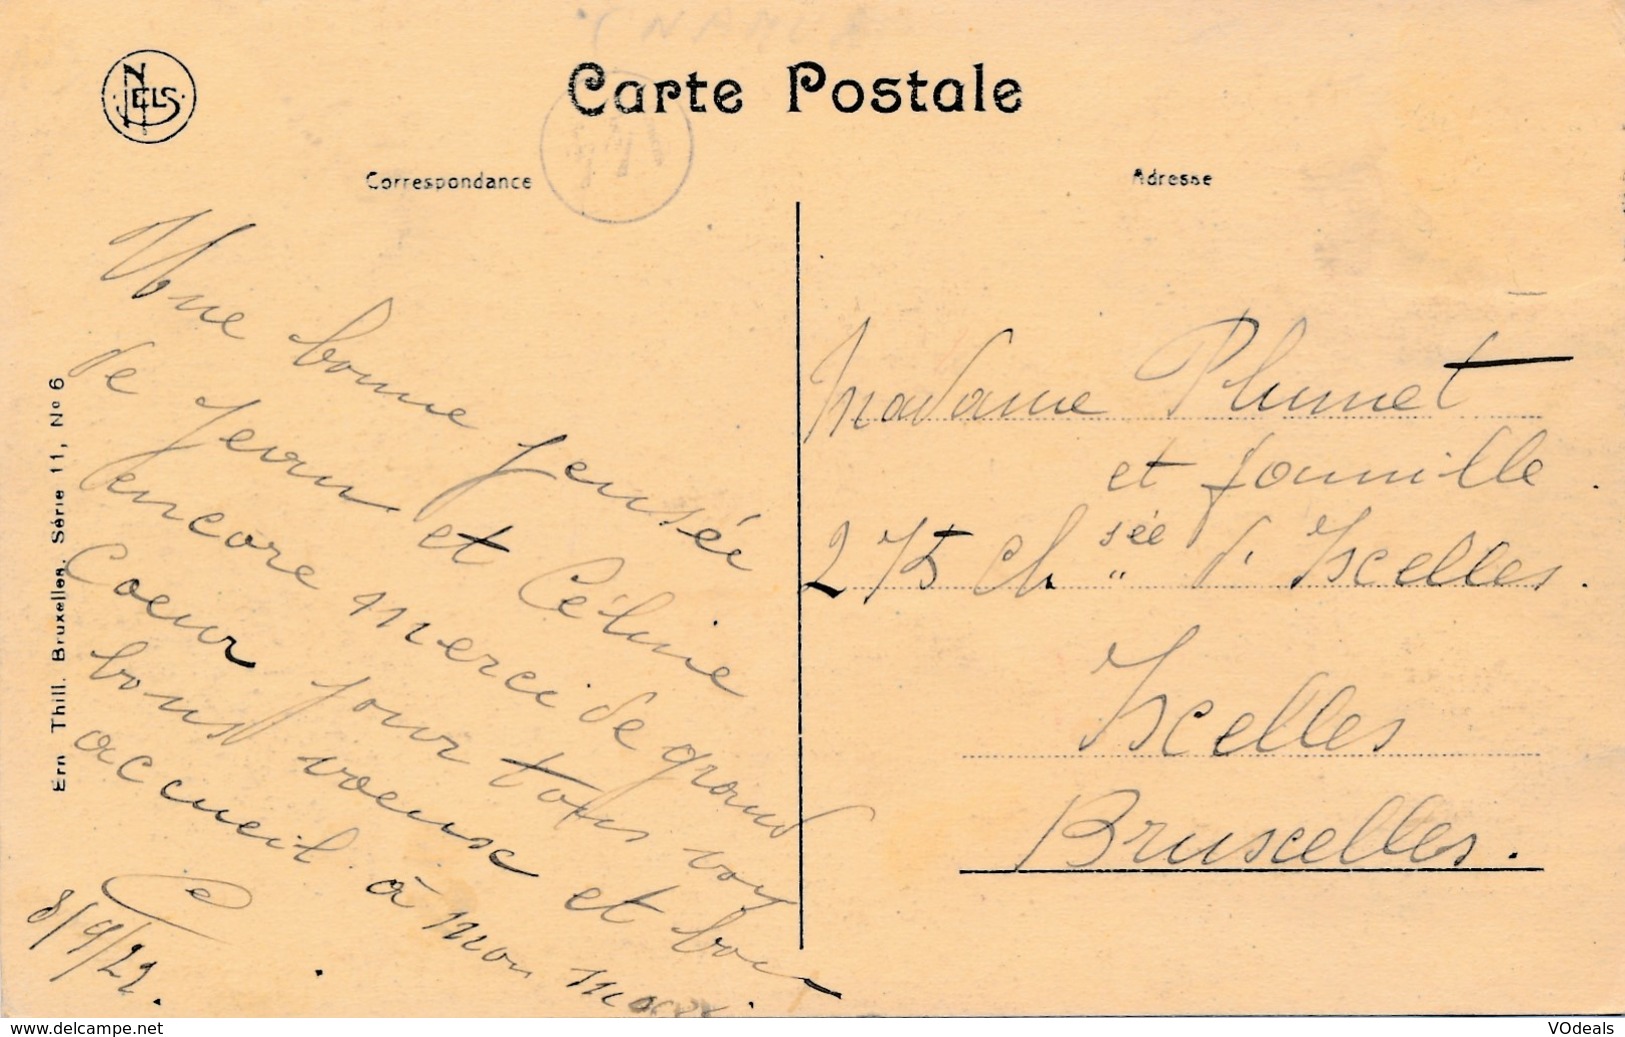 NELS
Carte Postale
Correspondance
Adresse
Une bonne pensée
de Jean et Céline
encore merci de grand
Coeur pour tous vos
bons voeux et bon
accueil à mon
8/9/22.
Madame Plumet
et famille
275 Ch sée d'Ixcelles.
Ixcelles
Bruxcelles.
Ern Thill. Bruxelles. Série 11, No 6
www.delcampe.net
VOdeals